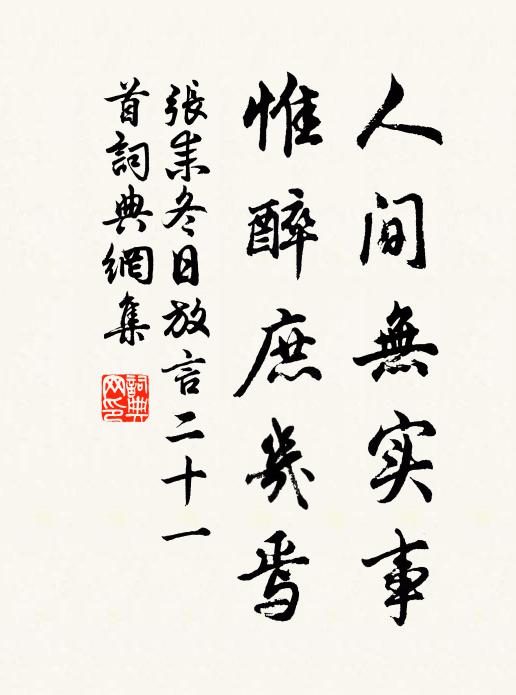 人間無实事
惟醉庶幾焉
張耒冬日放言二十一
首詞典網集
詞典
网印